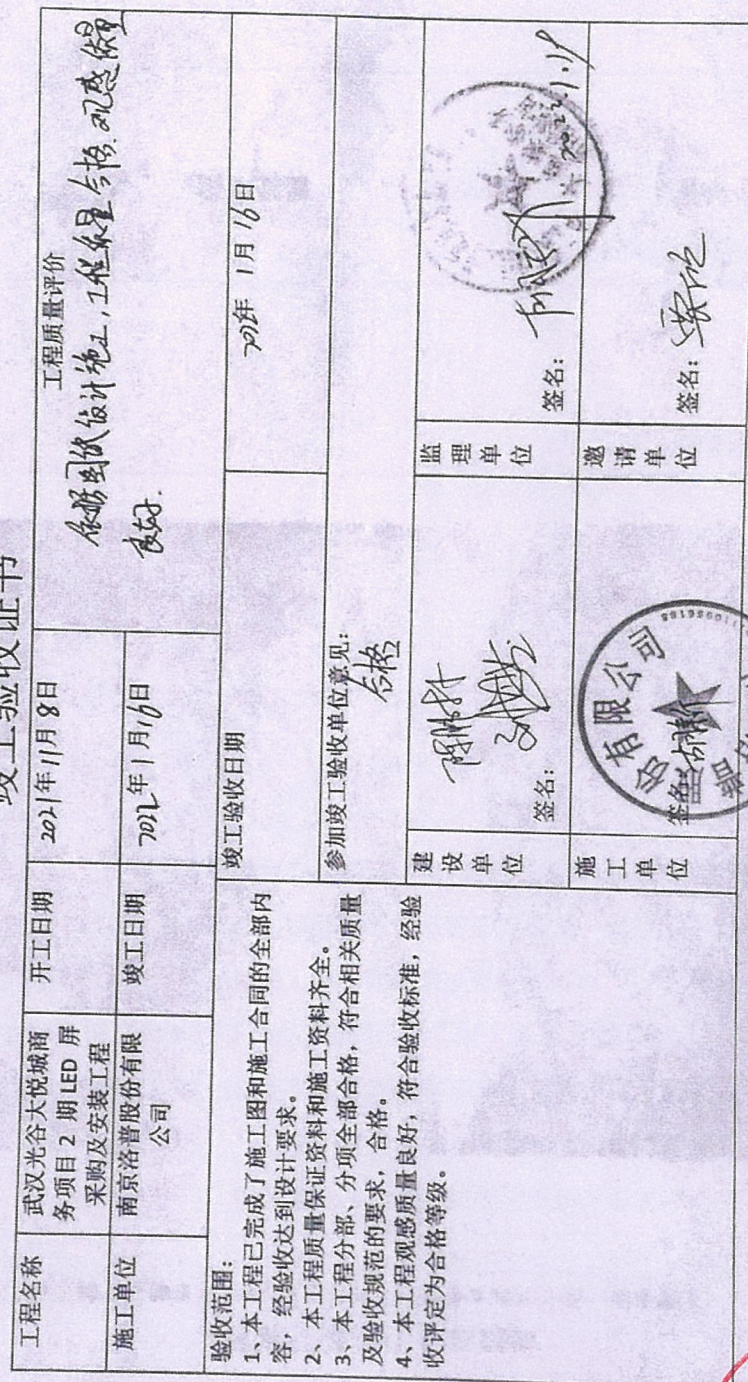 竣工验收证书
工程名称
武汉光谷大悦城商
务项目 2 期 LED 屏
采购及安装工程
开工日期
2021年11月8日
工程质量评价
依据图纸设计施工,工程质量合格.观感质量
良好.
施工单位
南京洛普股份有限
公司
竣工日期
2022年1月16日
验收范围:
1、本工程已完成了施工图和施工合同的全部内
容,经验收达到设计要求。
2、本工程质量保证资料和施工资料齐全。
3、本工程分部、分项全部合格,符合相关质量
及验收规范的要求,合格。
4、本工程观感质量良好,符合验收标准,经验
收评定为合格等级。
竣工验收日期
2022年 1月 16日
参加竣工验收单位意见:
合格
建设单位
签名:
监理单位
签名:
2022.1.19
施工单位
签名:
份有限公司
邀请单位
签名: